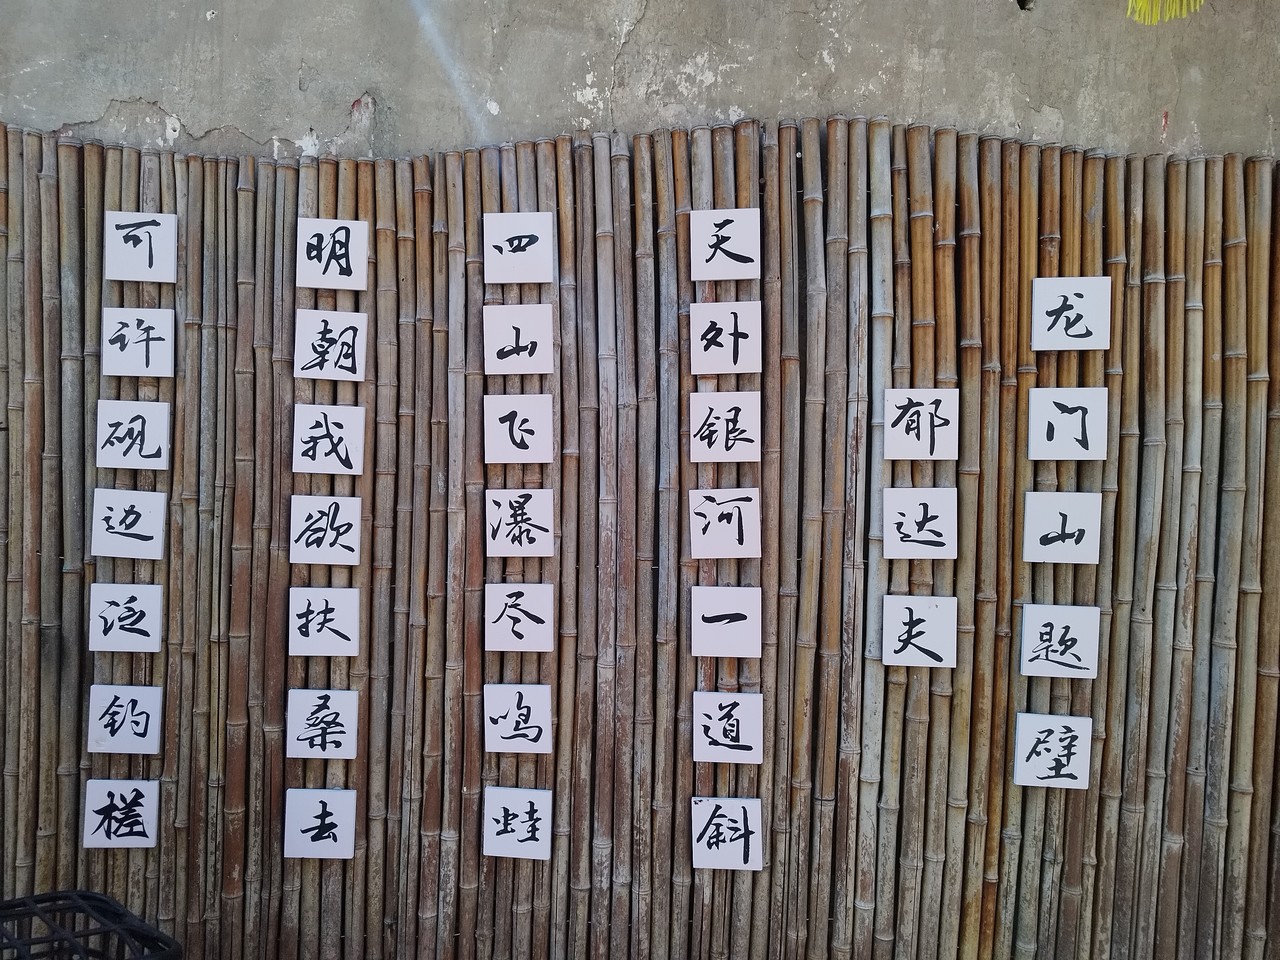 龙门山题壁
郁达夫
天外银河一道斜
四山飞瀑尽鸣蛙
明朝我欲扶桑去
可许砚边泛钓槎